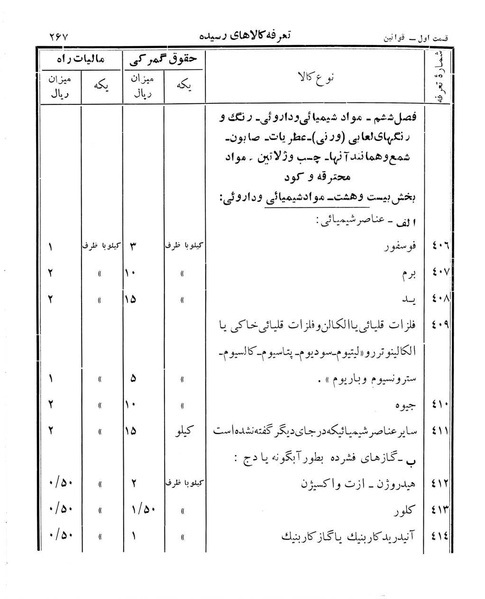 قسمت اول - قوانین تعرفه کالاهای رسیده ۲۶۷
شمارهٔ تعرفه نوع کالا حقوق گمرکی مالیات راه
یکه میزان ریال یکه میزان ریال
فصل ششم - مواد شیمیائی و داروئی - رنگ و
رنگهای لعابی (ورنی) - عطریات - صابون -
شمع و همانند آنها - چسب و ژلاتین، مواد
محترقه و کود
بخش بیست و هشت - مواد شیمیائی و داروئی:
الف - عناصر شیمیائی:
۴۰۶ فوسفور کیلو با ظرف ۳ کیلو با ظرف ۱
۴۰۷ برم » ۱۰ » ۲
۴۰۸ ید » ۱۵ » ۲
۴۰۹ فلزات قلیائی یا الکالن و فلزات قلیائی خاکی یا
الکالینوتررو «لیتیوم - سودیوم - پتاسیوم - کالسیوم -
سترونسیوم و باریوم». » ۵ » ۱
۴۱۰ جیوه » ۱۰ » ۲
۴۱۱ سایر عناصر شیمیائیکه در جای دیگر گفته نشده است کیلو ۱۵ » ۲
ب - گازهای فشرده بطور آبگونه یا دج:
۴۱۲ هیدروژن - ازت و اکسیژن کیلو با ظرف ۲ » ۰/۵۰
۴۱۳ کلور » ۱/۵۰ » ۰/۵۰
۴۱۴ آنیدرید کاربنیك یا گاز کاربنیك » ۱ » ۰/۵۰